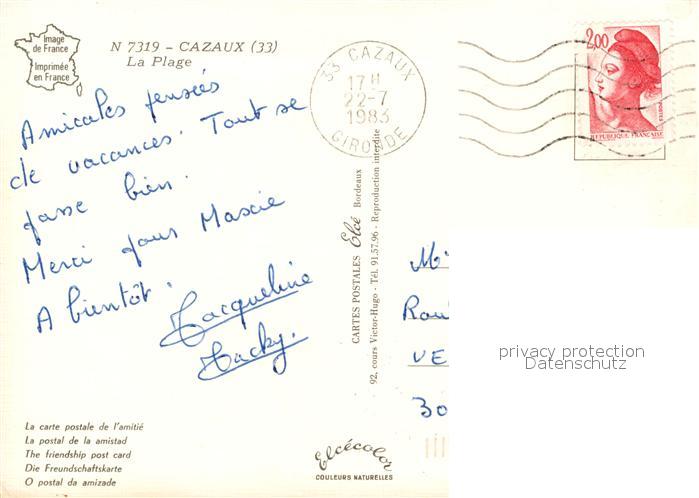 Image
de France
Imprimée
en France
N 7319 - CAZAUX (33)
La Plage
33 CAZAUX
17 H
22-7
1983
GIRONDE
2,00
POSTES
REPUBLIQUE FRANÇAISE
Amicales pensées
de vacances. Tout se
passe bien.
Merci pour Mascie
A bientôt.
Jacqueline
Jacky.
CARTES POSTALES Elcé Bordeaux
92, cours Victor-Hugo - Tél. 91.57.96 - Reproduction interdite
M
Rou
VE
30
privacy protection
Datenschutz
La carte postale de l'amitié
La postal de la amistad
The friendship post card
Die Freundschaftskarte
O postal da amizade
Elcécolor
COULEURS NATURELLES